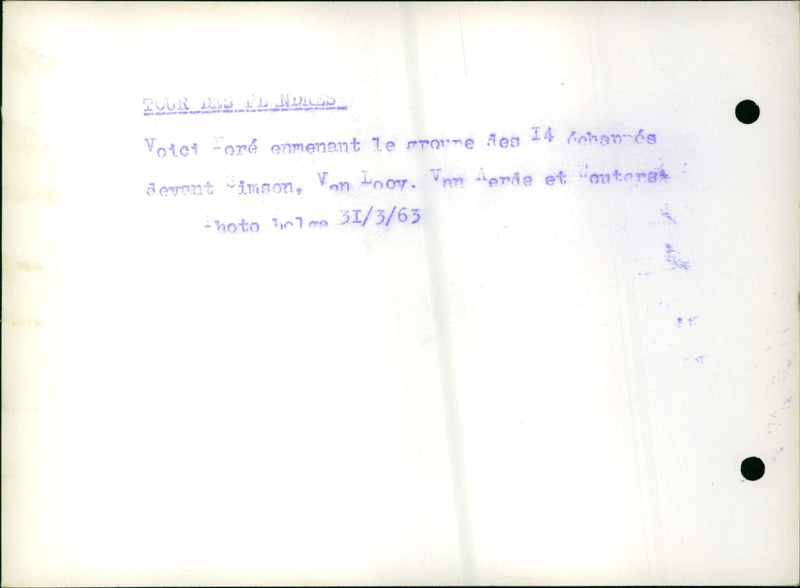 TOUR DES FLANDRES
Voici Foré enmenant le groupe des I4 échappés
devant Simson, Van Looy. Van Aerde et Wouters
Photo belga 3I/3/63